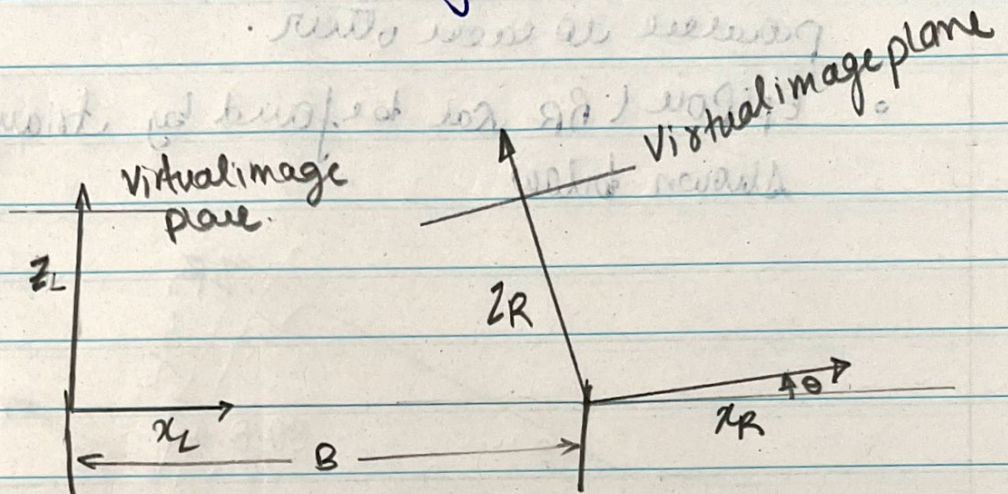 virtual image plane
virtual image
plane.
ZL
ZR
xL
B
xR
θ